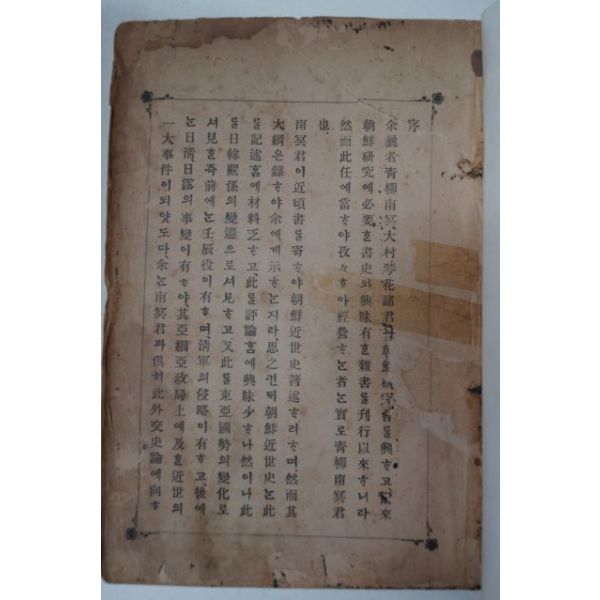 序
余曩者靑柳南冥、大村琴花諸君과 朝鮮硏究會를 興ᄒᆞ고、來
朝鮮硏究에 必要ᄒᆞᆫ 書史와 興味有ᄒᆞᆫ 雜書를 刊行以來ᄒᆞ니라
然而此任에 當ᄒᆞ야 孜々ᄒᆞ야 經營ᄒᆞᄂᆞᆫ 者ᄂᆞᆫ 實로 靑柳南冥君
也
南冥君이 近頃書를 寄ᄒᆞ야 朝鮮近世史著述ᄒᆞ려ᄒᆞ며、然而其
大綱은 錄ᄒᆞ야 余에게 示ᄒᆞᄂᆞᆫ지라、思之컨ᄃᆡ 朝鮮近世史ᄂᆞᆫ 此
를 記述ᄒᆞᆷ에 材料乏ᄒᆞ고、此를 評論ᄒᆞᆷ에 興味少ᄒᆞ나 然이나 此
를 日韓關係의 變遷으로셔 見ᄒᆞ고 又此를 東亞國勢의 變化로
셔 見ᄒᆞᆫ즉 前에ᄂᆞᆫ 壬辰役이 有ᄒᆞ며 淸軍의 侵略이 有ᄒᆞ고 後에
ᄂᆞᆫ 日淸日露의 事變이 有ᄒᆞ야、其亞綱亞政局上에 及ᄒᆞᆫ 近世의
一大事件이 되얏도다、余ᄂᆞᆫ 南冥君과 俱히 此外交史論에 向ᄒᆞ